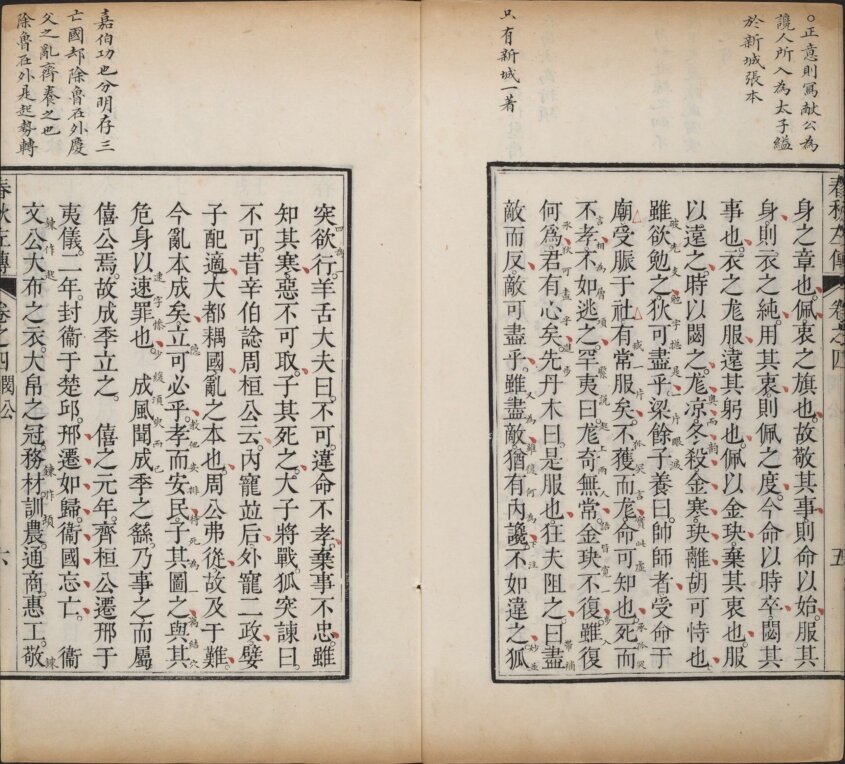 ○正意則寫献公為
讒人所入為太子縊
於新城張本
只有新城一著
春秋左傳 卷之四 閔公 五
身之章也。佩衷之旗也。故敬其事則命以始。服其
身則衣之純。用其衷則佩之度。今命以時卒。閟其
事也。衣之尨服。遠其躬也。佩以金玦。棄其衷也。服
以遠之。時以閟之。尨凉冬殺金寒玦離胡可恃也
雖欲勉之。狄可盡乎。梁餘子養曰。帥師者受命于
廟受脤于社有常服矣。不獲而尨命可知也。死而
不孝不如逃之。罕夷曰。尨奇無常。金玦不復。雖復
何為。君有心矣。先丹木曰。是服也。狂夫阻之。曰盡
敵而反。敵可盡乎。雖盡敵猶有内讒。不如違之。狐
嘉伯功也分明存三
亡國却除魯在外慶
父之亂齊養之也
除魯在外是起勢轉
突欲行。羊舌大夫曰。不可。違命不孝。棄事不忠。雖
知其寒。惡不可取。子其死之。大子將戰。狐突諫曰。
不可。昔辛伯諗周桓公云。内寵並后。外寵二政。嬖
子配適。大都耦國。亂之本也。周公弗從。故及于難。
今亂本成矣。立可必乎。孝而安民。子其圖之。與其
危身以速罪也。 成風聞成季之繇。乃事之。而屬
僖公焉。故成季立之。 僖之元年。齊桓公遷邢于
夷儀。二年。封衞于楚邱。邢遷如歸。衞國忘亡。 衞
文公大布之衣。大帛之冠。務材訓農。通商惠工。敬
春秋左傳 卷之四 閔公 六